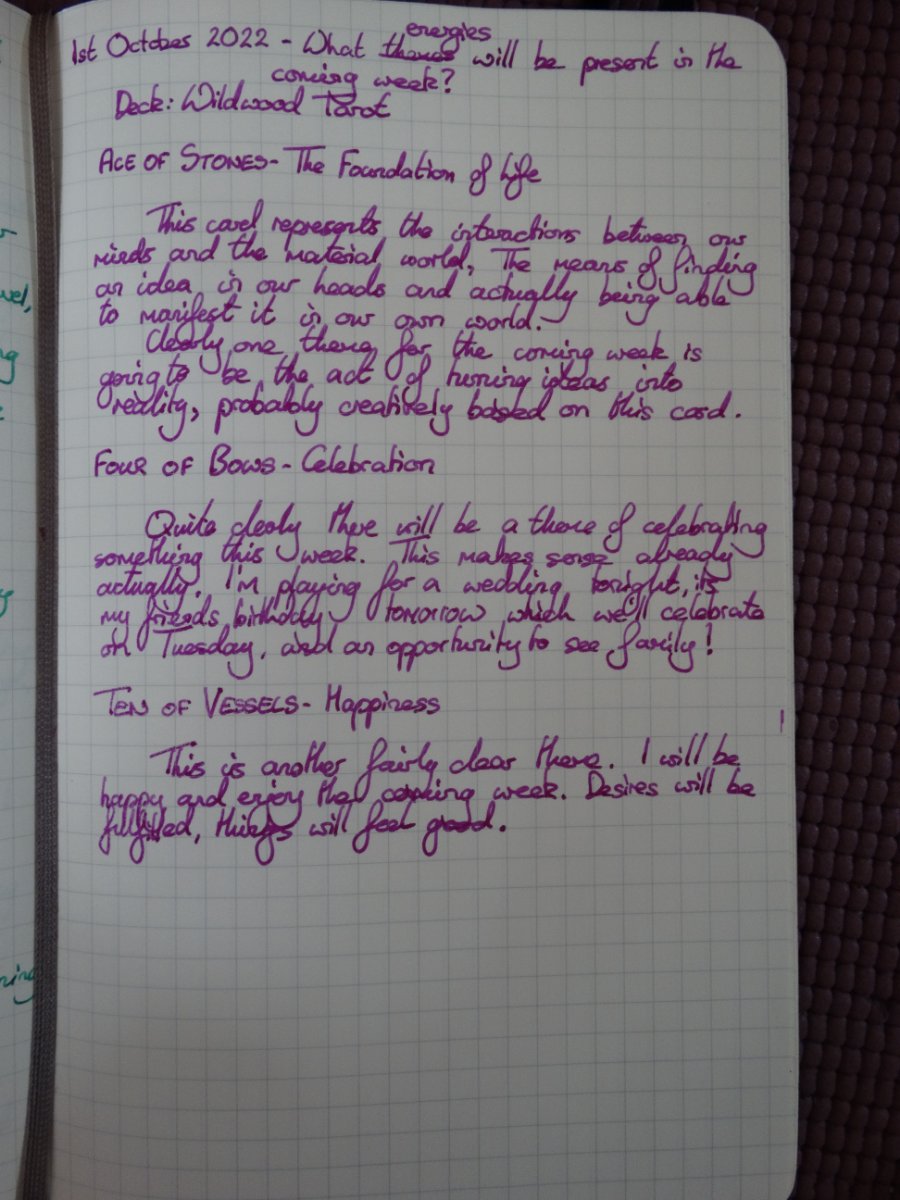 energies
1st October 2022 - What themes will be present in the
coming week?
Deck: Wildwood Tarot
ACE OF STONES - The Foundation of Life
This card represents the interactions between our
minds and the material world, The means of finding
an idea in our heads and actually being able
to manifest it in our own world.
Clearly one theme for the coming week is
going to be the act of turning ideas into
reality, probably creatively based on this card.
FOUR OF BOWS - Celebration
Quite clearly there will be a theme of celebrating
something this week. This makes sense already
actually. I'm playing for a wedding tonight, its
my friends birthday tomorrow which we'll celebrate
on Tuesday, and an opportunity to see family!
TEN OF VESSELS - Happiness
This is another fairly clear theme. I will be
happy and enjoy the coming week. Desires will be
fulfilled, things will feel good.